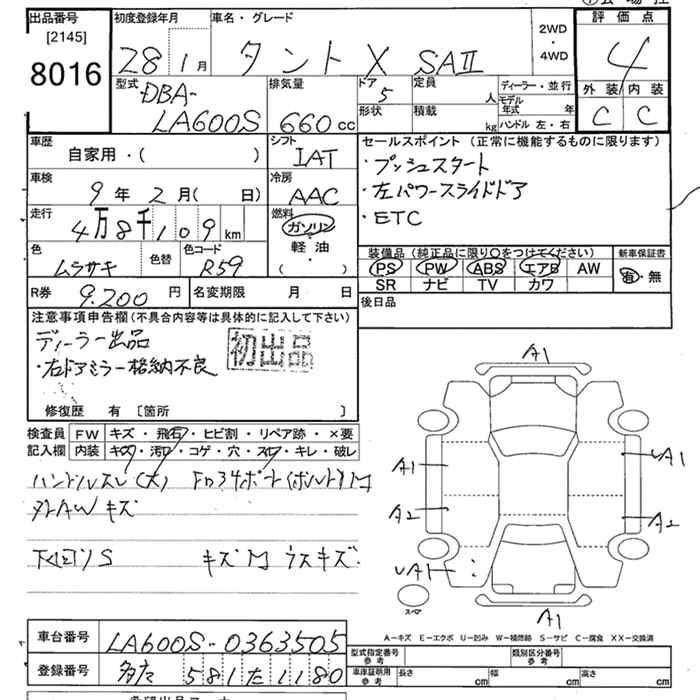 出品番号
[2145]
8016
初度登録年月
28 1月
車名・グレード
タント X SAⅡ
2WD
・
4WD
評価点
4
外装 内装
C C
型式
DBA-
LA600S
排気量
660cc
ドア
5
形状
定員
人
積載
kg
ディーラー・並行
モデル年式 年
ハンドル 左・右
車歴
自家用・( )
シフト
IAT
車検
9年 2月( 日)
冷房
AAC
走行
4万8千109km
燃料
ガソリン
軽・油
( )
色
ムラサキ
色替
色コード
R59
R券
9.200円
名変期限 月 日
セールスポイント(正常に機能するものに限ります)
・プッシュスタート
・左パワースライドドア
・ETC
装備品(純正品に限り〇をつけてください)
PS PW ABS エアB AW
SR ナビ TV カワ
新車保証書
有・無
後日品
注意事項申告欄(不具合内容等は具体的に記入して下さい)
ディーラー出品
初出品
・右ドアミラー格納不良
修復歴 有 [箇所 ]
検査員
記入欄
FW キズ・飛石・ヒビ割・リペア跡・×要
内装 キズ・汚れ・コゲ・穴・スレ・キレ・破レ
ハンドルスレ(大)
キズ
下廻りS キズM ウスキズ
A1
A1
A2
UA1
A2
UA1
A1
スペア
A－キズ E－エクボ U－凹み W－補修跡 S－サビ C－腐食 XX－交換済
車台番号
LA600S-0363505
登録番号
多摩 581 た 1180
型式指定番号
参考
類別区分番号
参考
車庫証明用
参考
長さ cm
幅 cm
高さ cm